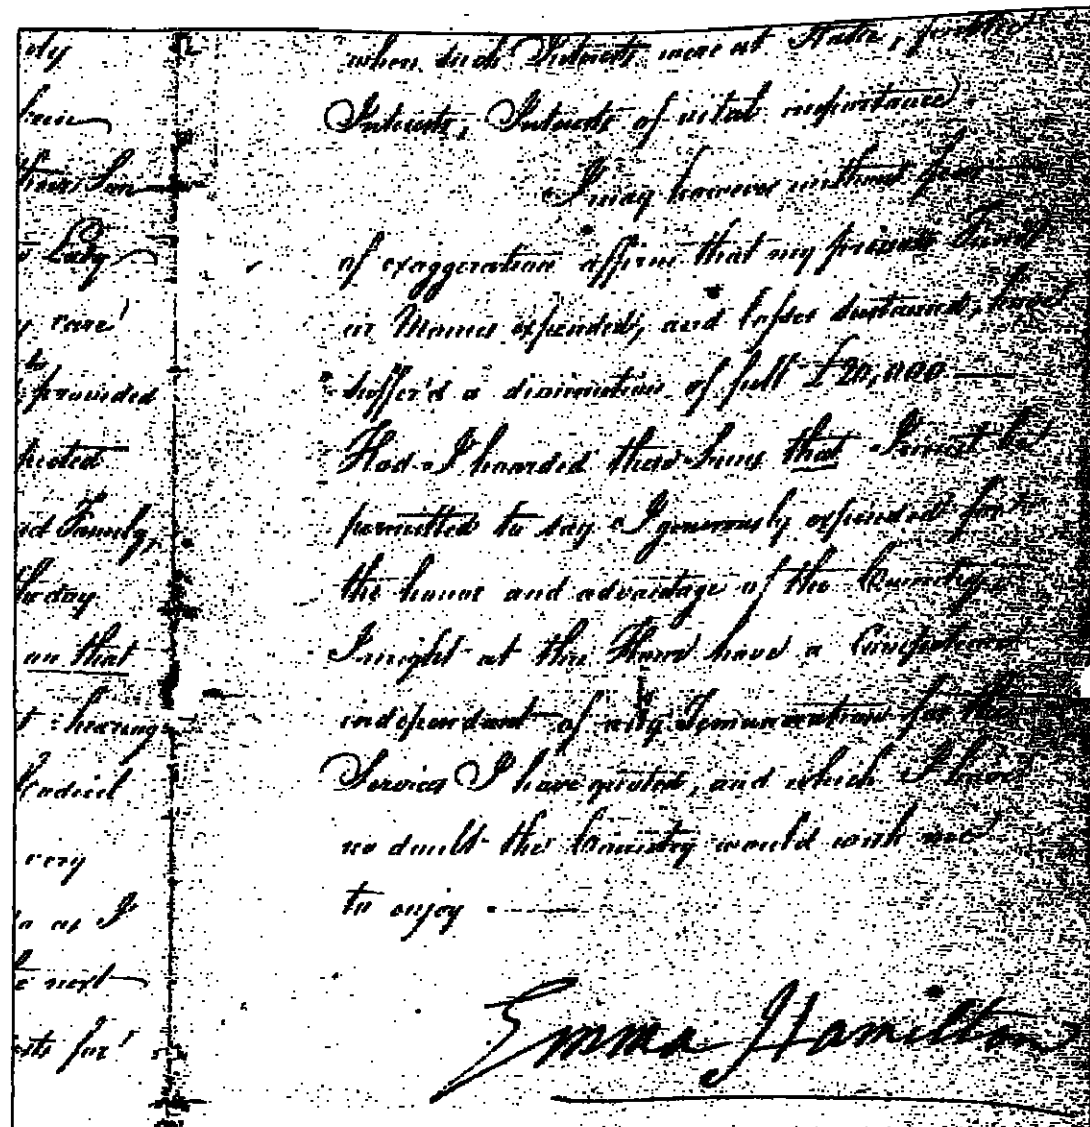 dy
been
their Son
Lady
care
to
provided
pected
Family,
the day
on that
hearing
very
as I
next
for
when such Interests were at Stake, public
Interests, Interests of vital importance.
I may however without fear
of exaggeration affirm that my private Funds
in Monies expended, and losses sustained, have
suffer'd a diminution of full £20,000
Had I hoarded these Sums that I must be
permitted to say I generously expended for
the honor and advantage of the Country
I might at this Hour have a Competence
independant of any Remuneration for the
Services I have quoted, and which I have
no doubt the Country would wish me
to enjoy.
Emma Hamilton